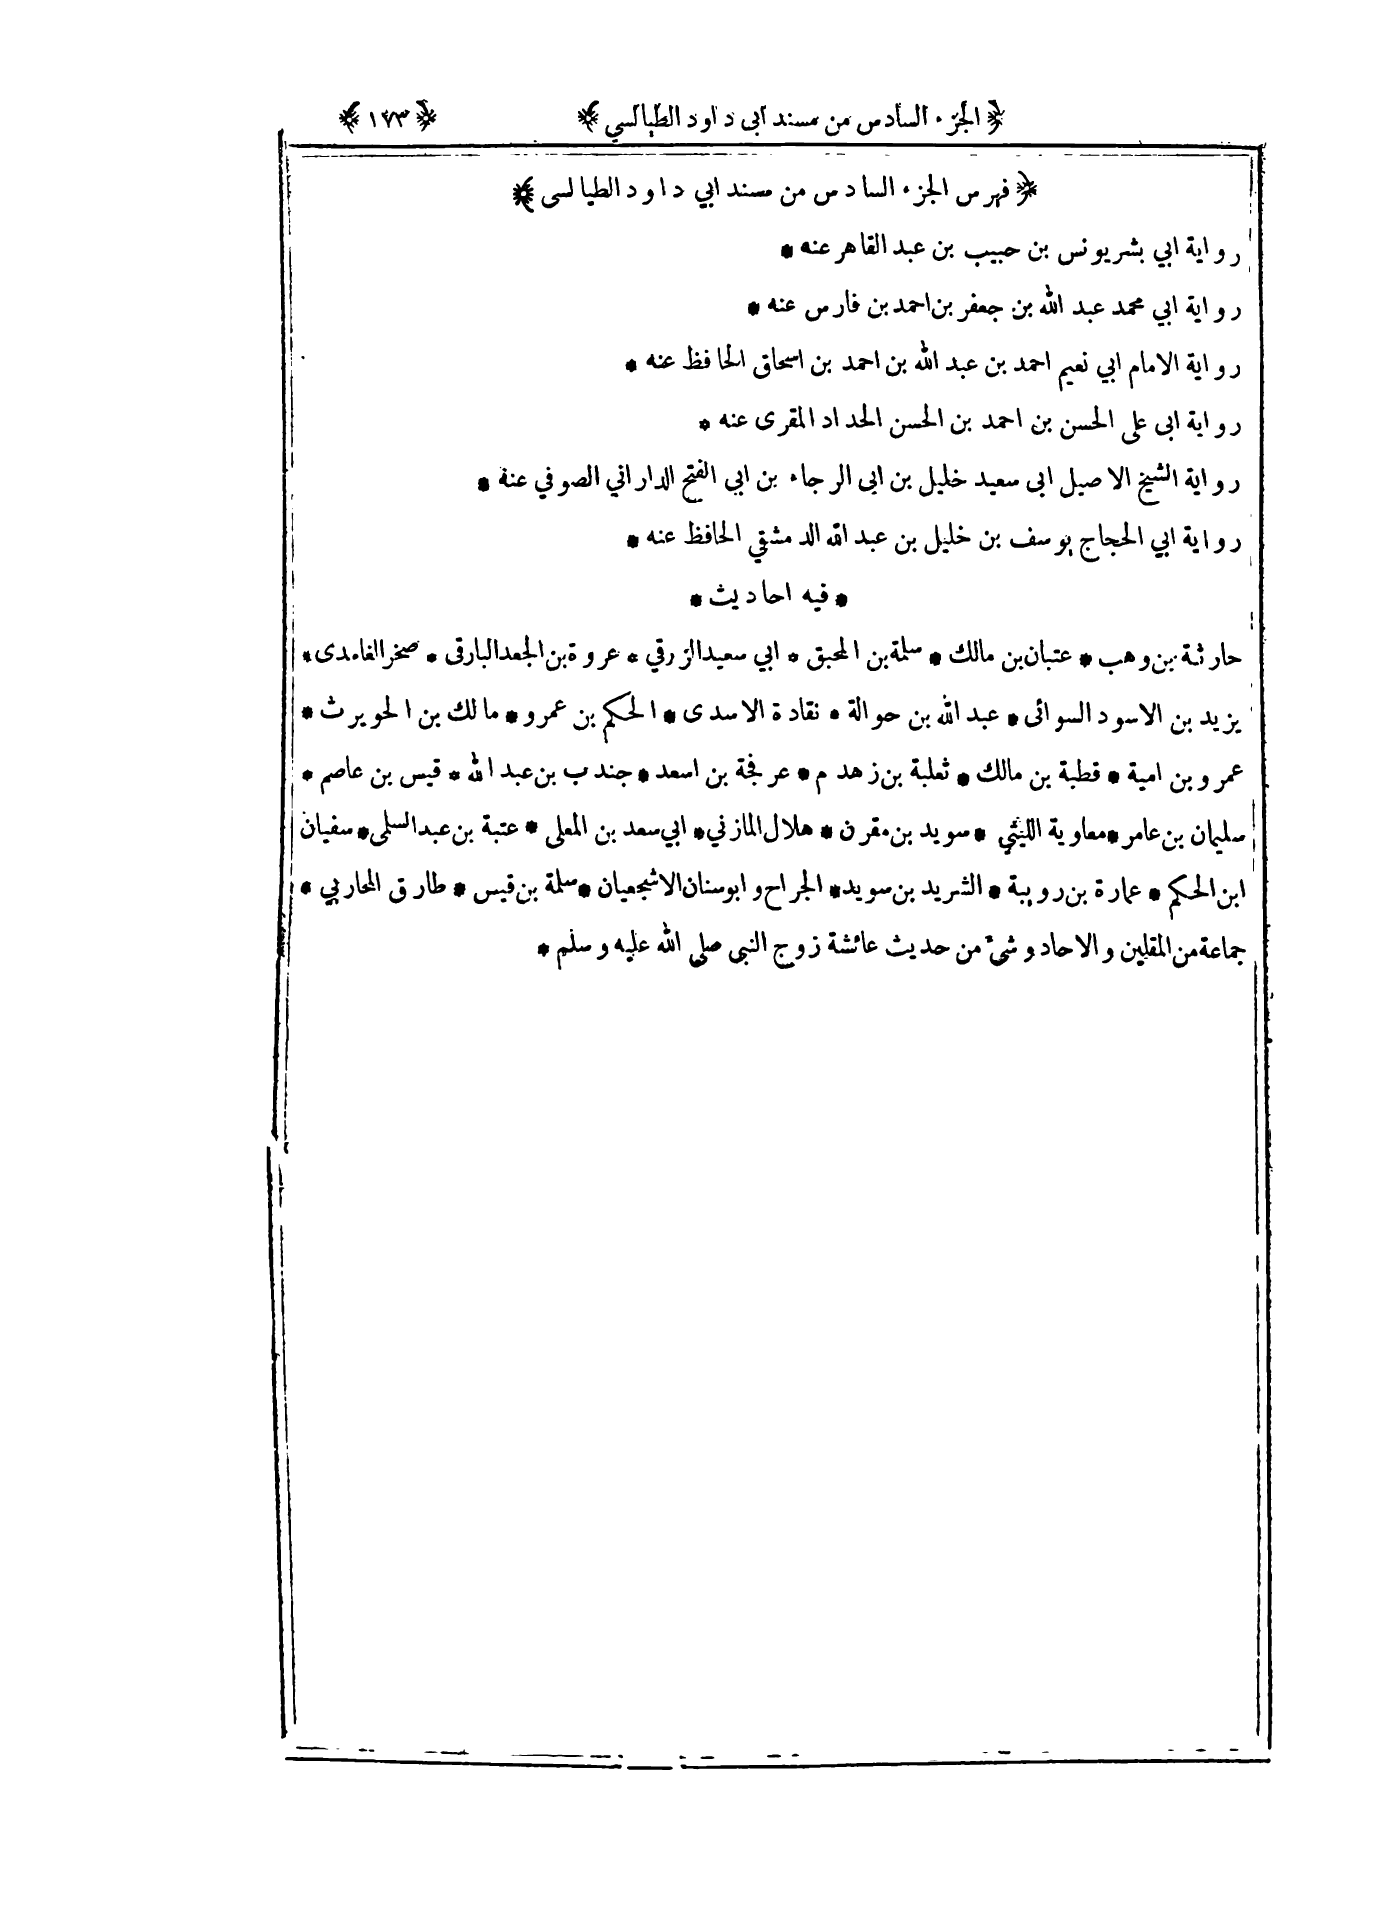 ﴿الجزء السادس من مسند ابى داود الطيالسي﴾ ﴿١٧٣﴾
﴿فهرس الجزء السادس من مسند ابي داود الطيالسى﴾
رواية ابي بشر يونس بن حبيب بن عبد القاهر عنه *
رواية ابي محمد عبد الله بن جعفر بن احمد بن فارس عنه *
رواية الامام ابي نعيم احمد بن عبد الله بن احمد بن اسحاق الحافظ عنه *
رواية ابى على الحسن بن احمد بن الحسن الحداد المقرى عنه *
رواية الشيخ الاصيل ابى سعيد خليل بن ابى الرجاء بن ابي الفتح الداراني الصوفي عنه *
رواية ابي الحجاج يوسف بن خليل بن عبد الله الدمشقي الحافظ عنه *
* فيه احاديث *
حارثة بن وهب * عتبان بن مالك * سلمة بن المحبق * ابي سعيد الزرقي * عروة بن الجعد البارقى * صخر الغامدى *
يزيد بن الاسود السوائى * عبد الله بن حوالة * نقادة الاسدى * الحكم بن عمرو * مالك بن الحويرث *
عمرو بن امية * قطبة بن مالك * ثعلبة بن زهدم * عرفجة بن اسعد * جندب بن عبد الله * قيس بن عاصم *
سليمان بن عامر * معاوية الليثي * سويد بن مقرن * هلال المازني * ابي سعد بن المعلى * عتبة بن عبد السلمى * سفيان
ابن الحكم * عمارة بن رويبة * الشريد بن سويد * الجراح وابوسنان الاشجعيان * سلمة بن قيس * طارق المحاربي *
جماعة من المقلين والاحاد وشئ من حديث عائشة زوج النبى صلى الله عليه وسلم *